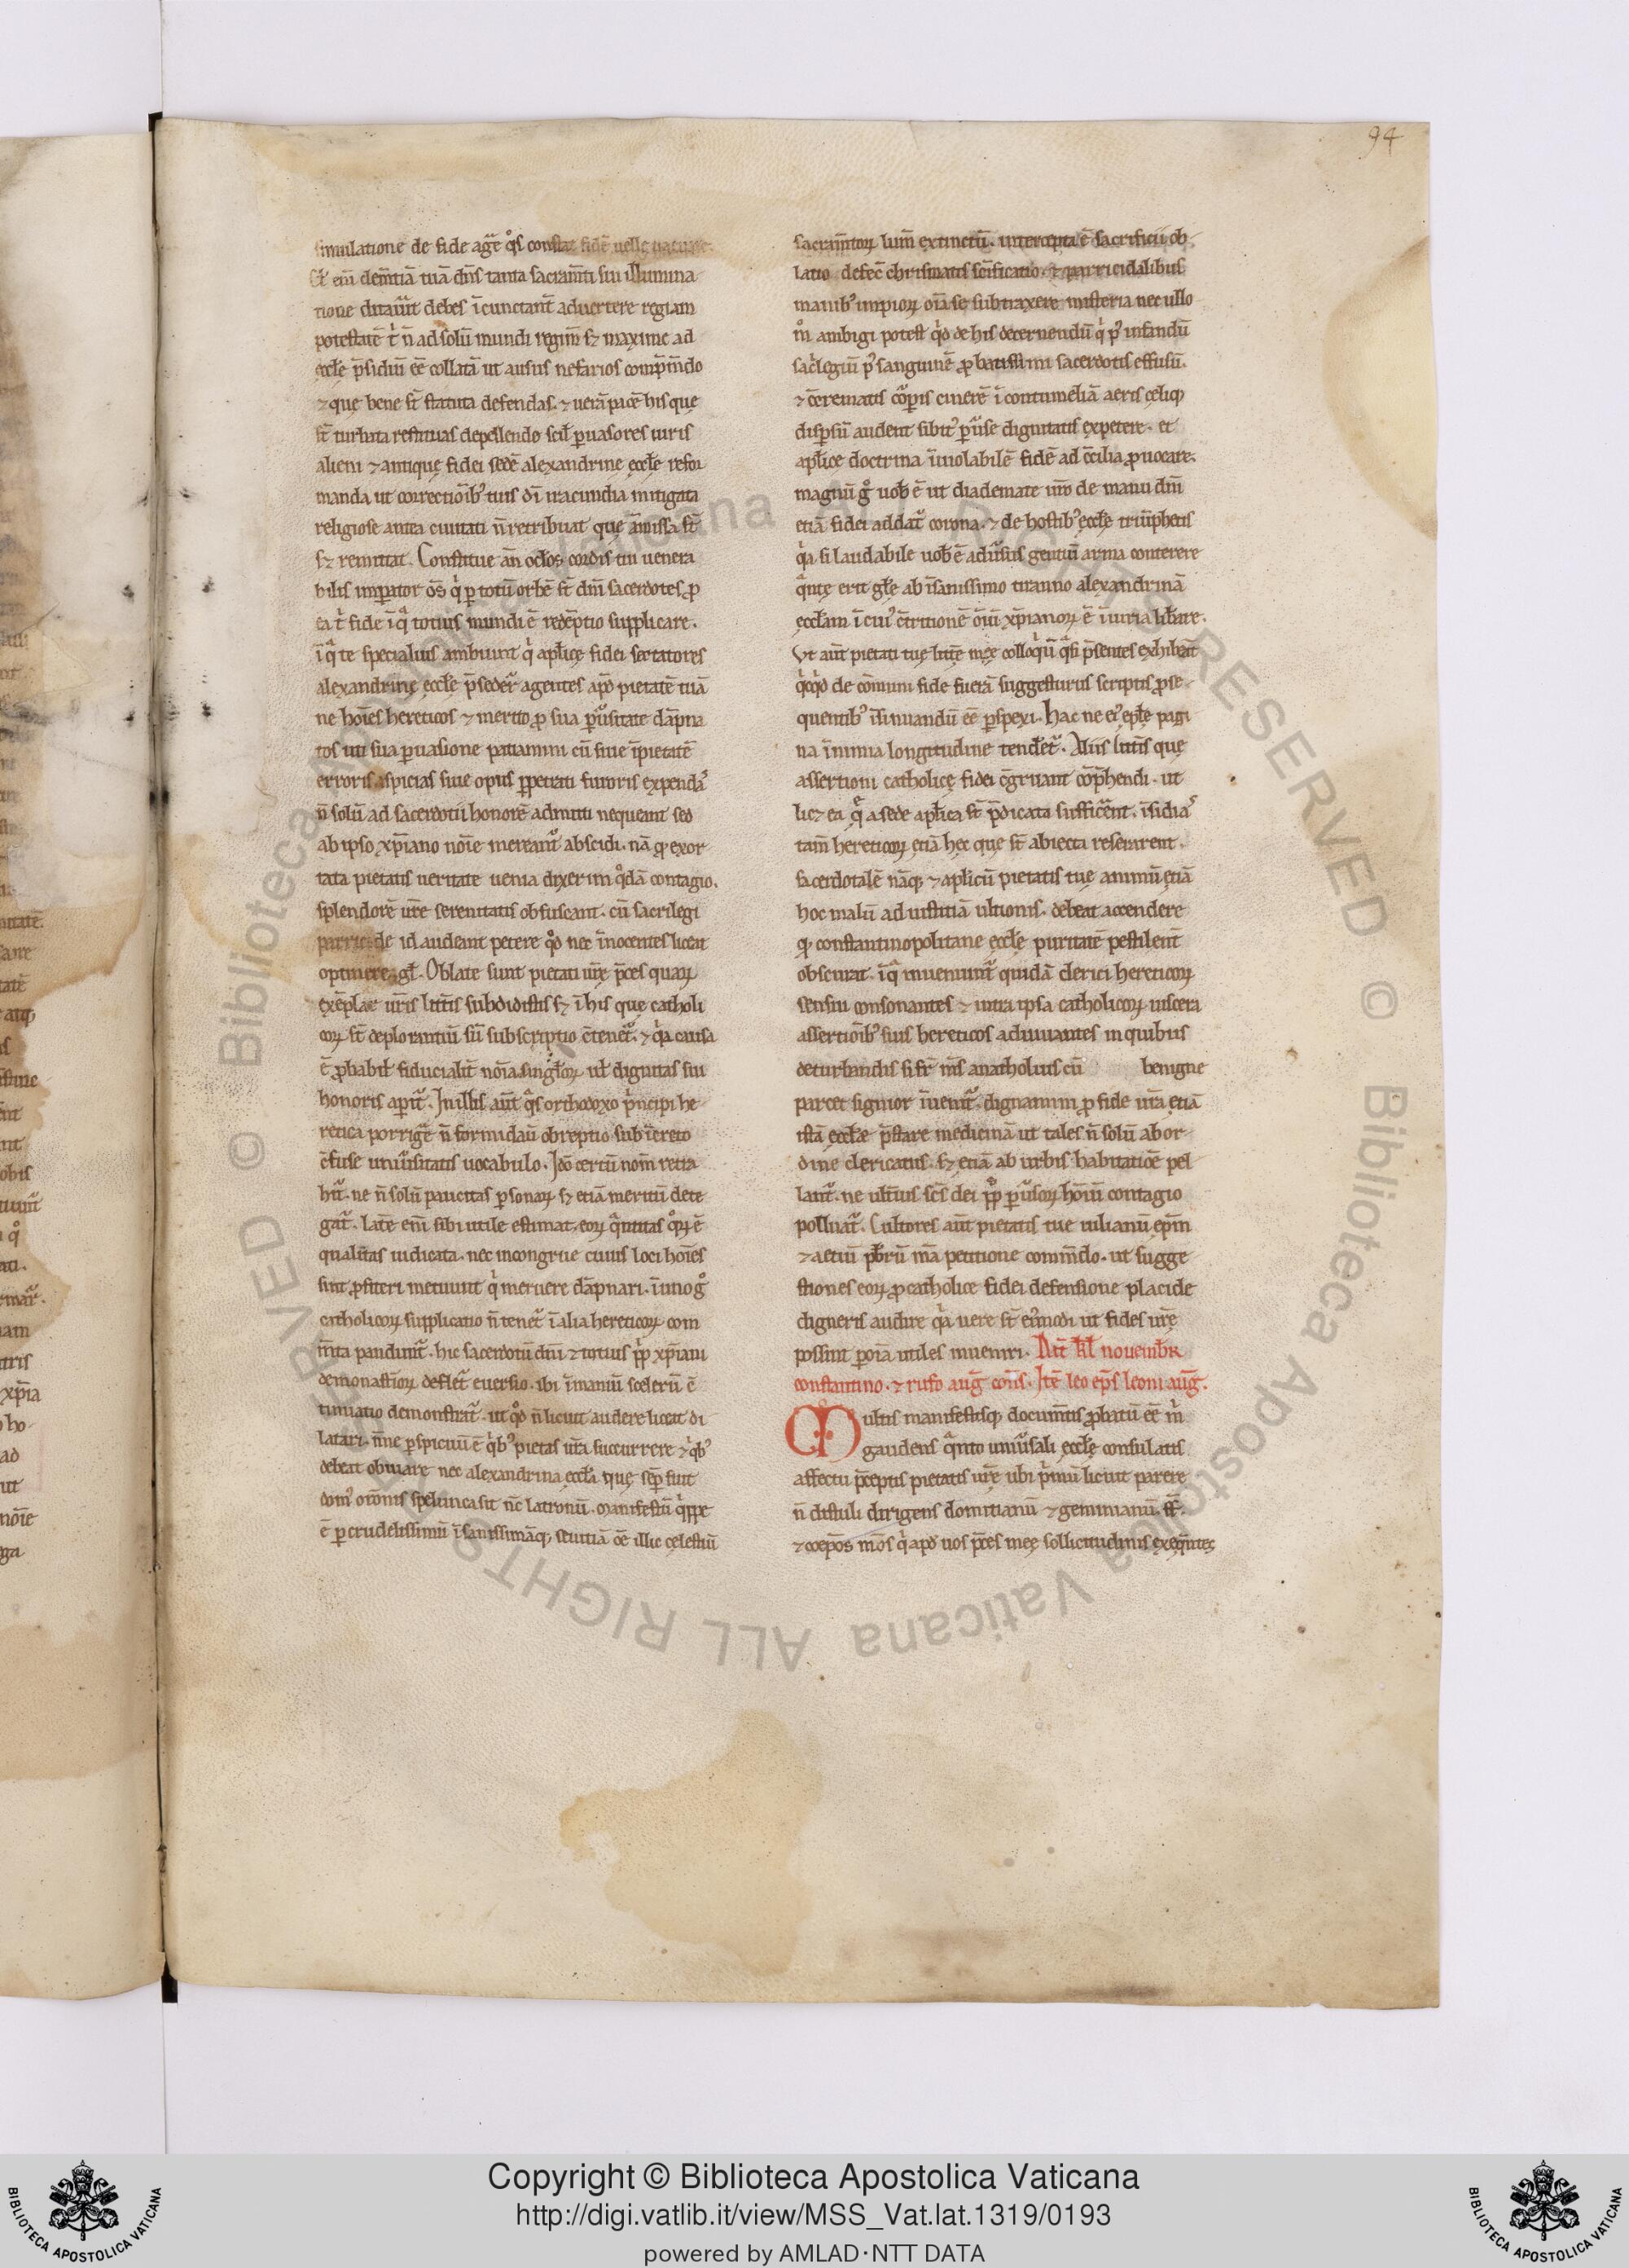 94
simulatione de fide agē q̊s constat fidē uelle uacuare.
Cū eni̅ clem̅tiā tuā dn̄s tanta sacram̅ti sui illumina
tione ditauit̄ debes ī cunctant̄ aduertere regiam
potestatē t̕ n̄ ad solū mundi regim̄ sꝫ maxime ad
eccl̄e p̄sidiū eē collatā ut ausus nefarios comp̕m̄do
⁊ que bene st̄ statuta defendas. ⁊ uerā pacē his que
st̄ turbata restituas depellendo scil̕ ꝑuasores iuris
alieni ⁊ antique fidei sedē alexandrine eccl̄e refor
manda ut correctiōibꝰ tuis dī iracundia mitigata
religiose antea ciuitati n̄ retribuat que āmissa st̄
sꝫ remittat. Constitue an̄ ocl̕os cordis tui uenera
bilis imꝑator om̄s q̕ ꝑ totū orbē st̄ dn̄i sacerdotes ꝓ
ea t̕ fide ī q̄ totius mundi ē redēptio supplicare.
ī q̄ te specialius ambiunt q̕ apl̕ice fidei sectatores
alexandrine eccl̄e p̄sedeŕ agentes apd̕ pietatē tuā
ne hoīes hereticos ⁊ merito ꝓ sua ꝑuersitate dāpna
tos uti sua ꝑuasione patiamini cū siue īpietatē
erroris aspicias siue opus ꝑpetrati furoris expendaˢ
n̄ solū ad sacerdotii honorē admitti nequeant sed
ab ipso xp̄iano nōie mereant̄ abscidi. nā ꝙ exor
tata pietatis ueritate uenia dixerim q̊dā contagio.
splendorē ur̄e serenitatis obfuscant. cū sacrilegi
parricide id audeant petere qd̊ nec īnocentes liceat
optinere gͣ. Oblate sunt pietati ur̄e p̄ces quaꝝ
exēplar ur̄is litt̄is subdidistis sꝫ ī his que catholi
coꝝ st̄ deplorantiū sū subscriptio c̄tenet̄. ⁊ q̕a causa
ē ꝓbabil̕ fiducialit̄ nōia singl̕oꝝ ut̕ dignitas sui
honoris aꝑit̄. In illis aūt q̄s orthodoxo p̕ncipi he
retica porrigē n̄ formidau̅ obreptio sub ic̄reto
c̄fuse uniu̕sitatis uocabulo. Idō certū nom̄ reti
het̄. ne n̄ solū paucitas ꝑsonaꝝ sꝫ etiā meritū dete
gat̄. Late eni̅ sibi utile estimat. eoꝝ q̄ntitas q̊ꝝ ē
qualitas iudicata. nec incongrue cuius loci hoīes
sint ꝓfiteri metuunt q̕ meruere dāpnari. īmo g̊
catholicoꝝ supplicatio n̄ tenet̄ ī alia hereticoꝝ com
m̄ta pandunt̄. hic sacerdotū dn̄i ⁊ totius pp̕ xp̄iani
⁊ monast̄ioꝝ deflet̄ euersio. ibi īmaniū scelerū c̄
tinuatio demonstrat̄. ut qd̊ n̄ licuit audere liceat di
latari. n̄ne ꝑspicuū ē q̕bꝰ pietas ur̄a succurrere ⁊ q̕bꝰ
debeat obuiare nec alexandrina eccl̄a que semꝑ fuit
domꝰ orōnis spelunca sit nc̄ latronū. Manifestū q̕ppe
ē ꝑ crudelissimū īsanissimāqꝫ seuitiā oē illic celestiū
sacram̄toꝝ lum̄ extinctū. intercepta ē sacrificii ob
latio defec̄ chrismatis sc̄ificatio. ⁊ parricidalibus
manibꝰ impioꝝ oīa se subtraxere misteria nec ullo
m̊ ambigi potest q̕d de his decernendū q̕ pꝰ infandū
sac̕legiū pꝰ sanguinē ꝓbatissimi sacerdotis effusū.
⁊ cremati cor̕ꝑis cinerē ī contumeliā aeris celiqꝫ
disꝑsū audent sibitꝰ ꝑuase dignitatis expetere. et
apl̕ice doctrina īuiolabilē fidē ad c̄cilia ꝓuocare.
magnū g̊ uob̕ ē ut diademate ur̄o de manu dn̄i
etiā fidei addat̄ corona. ⁊ de hostibꝰ eccl̄e triūphetis
q̕a si laudabile uob̕ ē adu̕sus gentiū arma conterere
q̄nte erit gl̄e ab īsanissimo tiranno alexandrinā
eccl̄am ī cuiꝰ c̄tritionē ōiū xp̄ianoꝝ ē iniuria lib̕are.
Vt aūt pietati tue litt̄e mee colloq̕ū q̄si p̄sentes exhibeāt
q̕cq̕d de cōmuni fide fuerā suggesturus scriptis ꝓse
quentibꝰ īsinuandū eē ꝑspexi. Hac ne eiꝰ epl̄e pagi
na īnimia longitudine tendet̄. Aliis litt̄is que
assertioni catholice fidei cōgruant cōp̄hendi. ut
licꝫ ea q̄ a sede apl̕ica st̄ p̄dicata sufficēnt. īsidiaˢ
tam̄ hereticoꝝ etiā hec que st̄ abiecta reserarent.
sacerdotalē nāqꝫ ⁊ apl̕icū pietatis tue animū etiā
hoc malū ad iustitiā ultionis. debeat accendere
ꝙ constantinopolitane eccl̄e puritatē pestilent̄
obscurat. ī q̄ inueniunt̄ quidā clerici hereticoꝝ
sensui consonantes ⁊ intra ipsa catholicoꝝ uiscera
assertiōibꝰ suis hereticos adiuuantes in quibus
deturbandis si fr̄ m̄s anatholius cū benigne
parcet signior īuenit̄. dignamini ꝓ fide ur̄a etiā
istā eccl̄e p̄stare medicinā ut tales n̄ solū ab or
dine clericatus. sꝫ etiā ab urbis habitatiōe pel
lant̄. ne ult̄ius sc̄s dei pp̕ls ꝑu̕soꝝ hoīū contagio
polluat̄. Cultores aūt pietatis tue iulianū ep̄m
⁊ aetiū pb̕rū m̄a petitione com̄do. ut sugge
stiones eoꝝ ꝓ catholice fidei defensione placide
digneris audire q̕a uere st̄ eiꝰmodi ut fides ur̄e
possint ꝑ oīa utiles inueniri. Dat̄ kl̄ nouemb̕r
constantino. ⁊ rufo aug̅ cōns̄. Itē leo ep̄s leoni aug̅.
Multis manifestisqꝫ documtis ꝓbatū eē m̕
gaudens q̄nto uniu̕sali eccl̄e consulatis
affectu p̄ceptis pietatis ur̄e ubi p̕mū licuit parere
n̄ distuli dirigens domitianū ⁊ geminianū. ff̄.
⁊ coep̄os m̄os q̕ apd̕ uos p̄ces mee sollicitudinis exeq̄ntes
Copyright © Biblioteca Apostolica Vaticana
http://digi.vatlib.it/view/MSS_Vat.lat.1319/0193
powered by AMLAD·NTT DATA
BIBLIOTECA APOSTOLICA VATICANA
BIBLIOTECA APOSTOLICA VATICANA